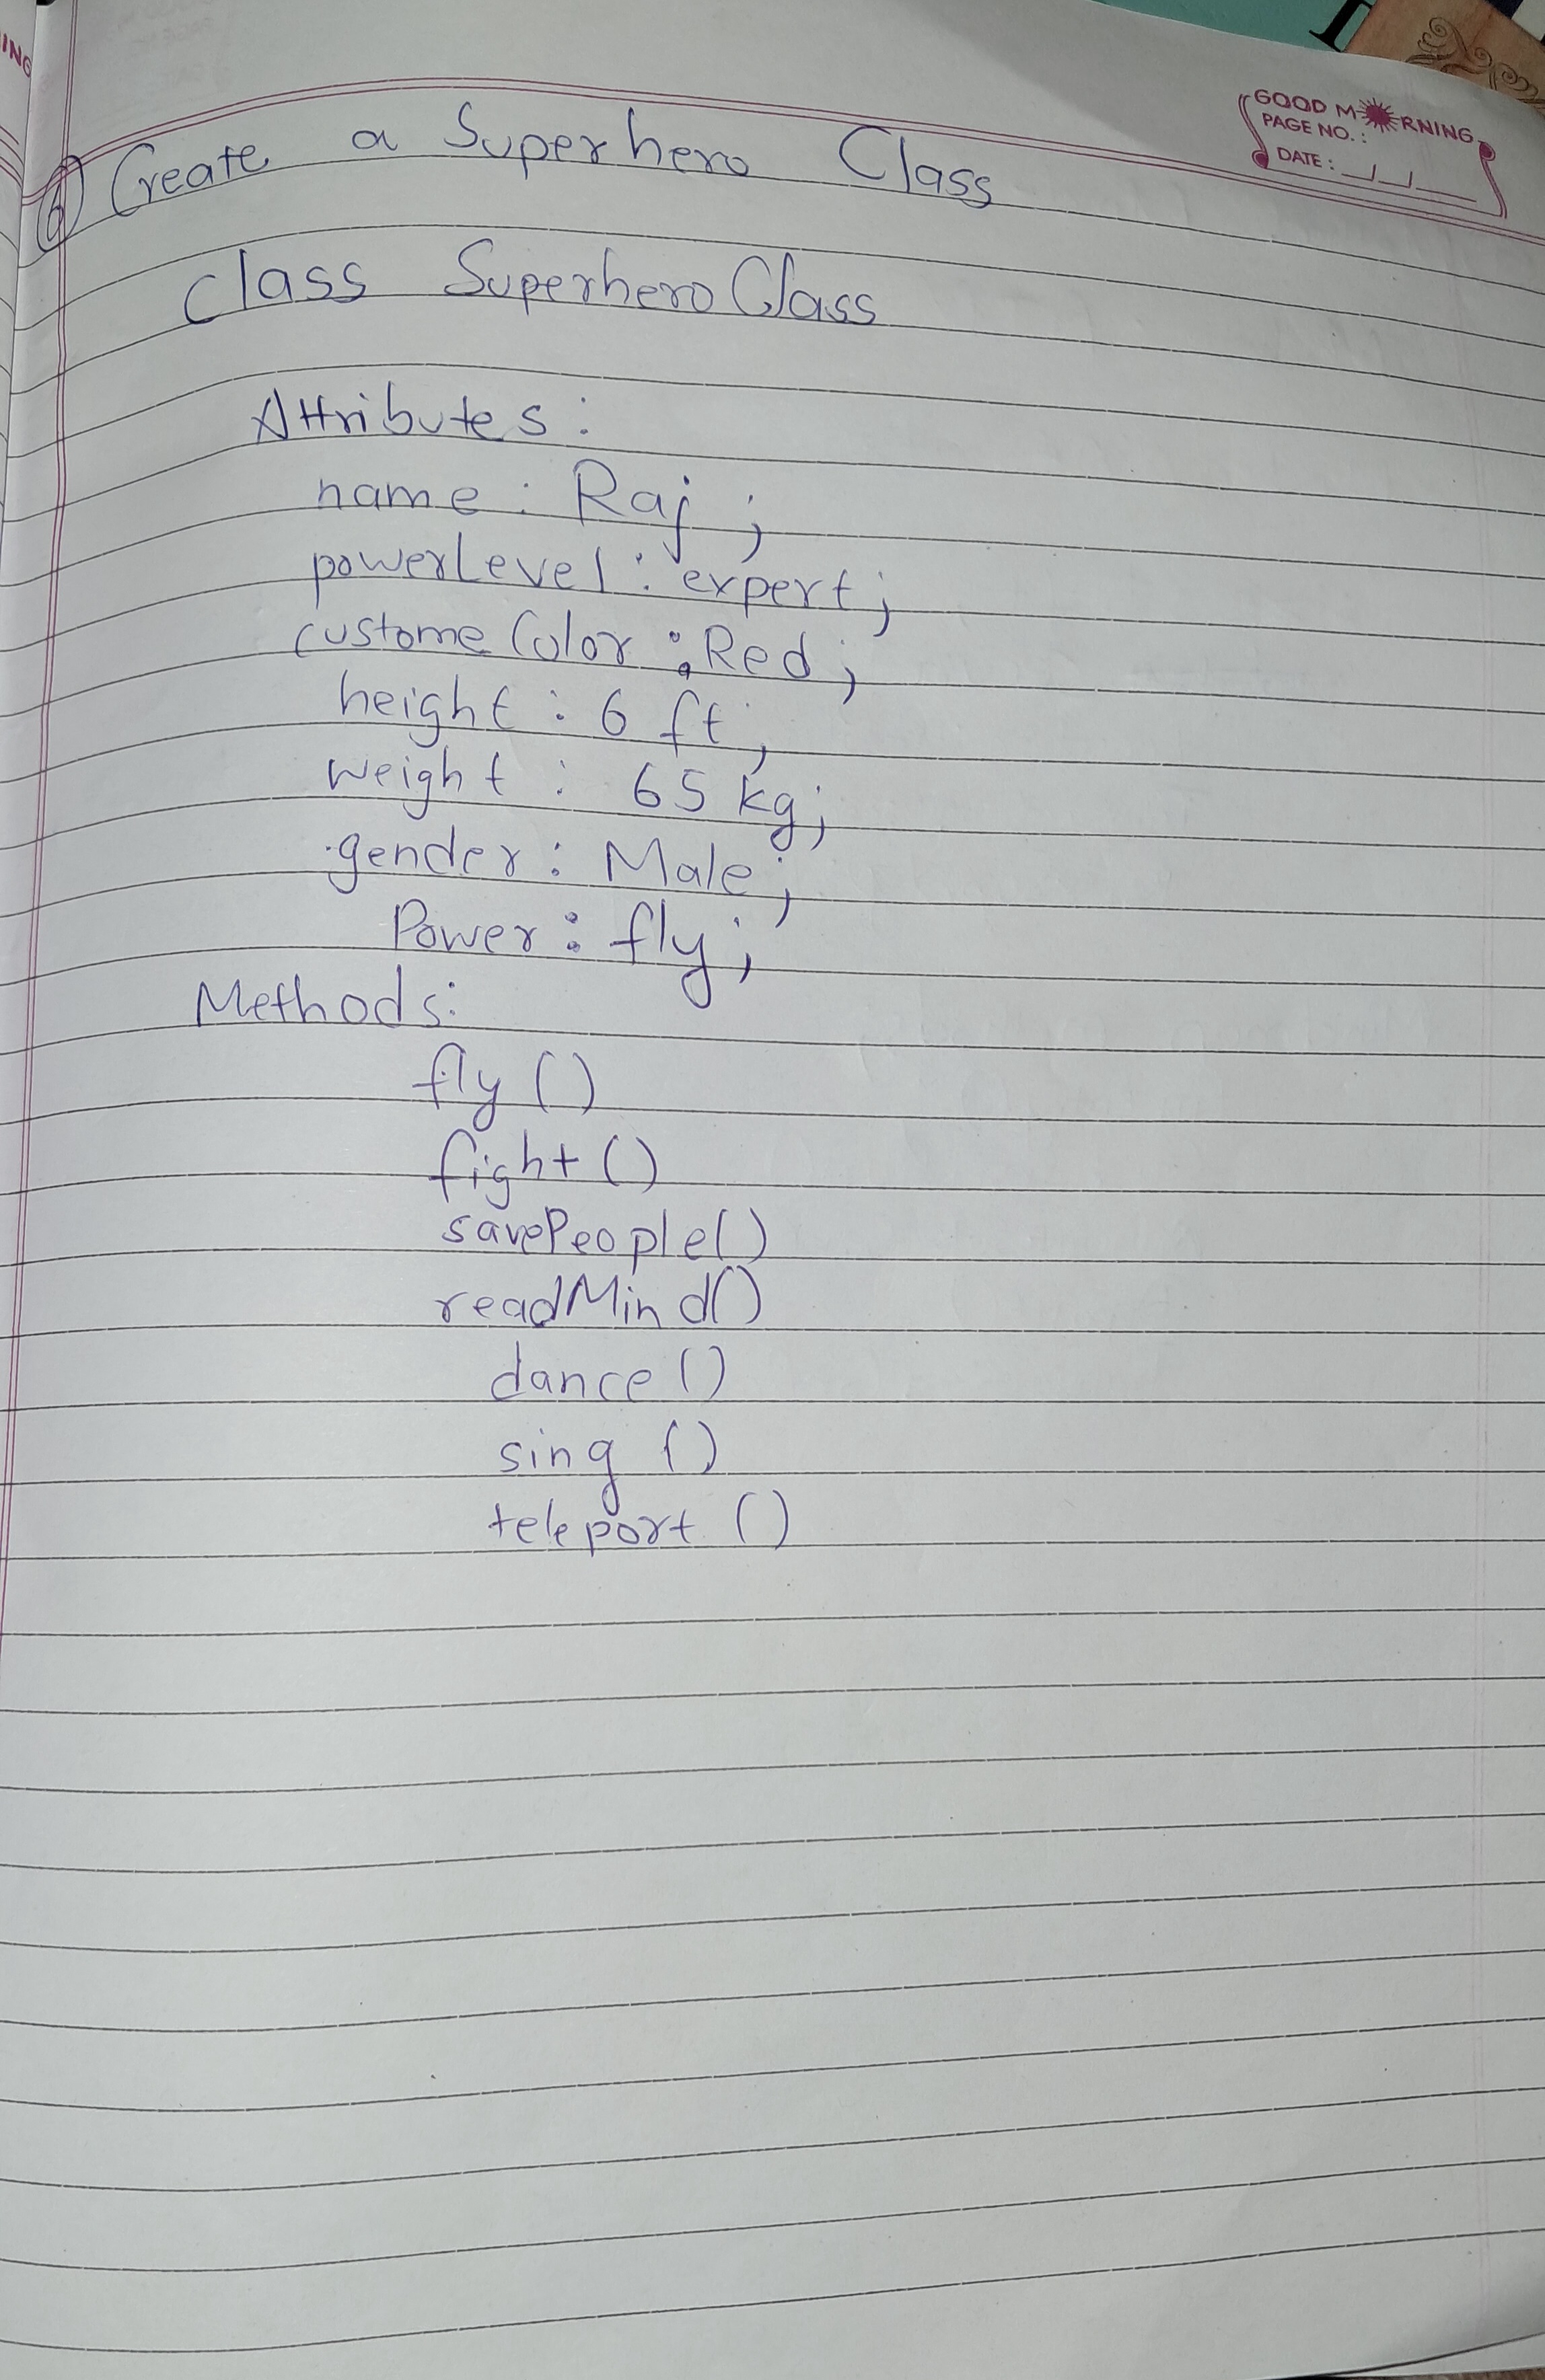 ING
GOOD MORNING
PAGE NO.:
DATE:
6) Create a Superhero Class
class Superhero Class
Attributes:
name : Raj ;
powerLevel : expert;
custome Color : Red;
height : 6 ft;
weight : 65 kg;
gender : Male;
Power : fly;
Methods:
fly ()
fight ()
savePeople()
readMind()
dance ()
sing ()
teleport ()